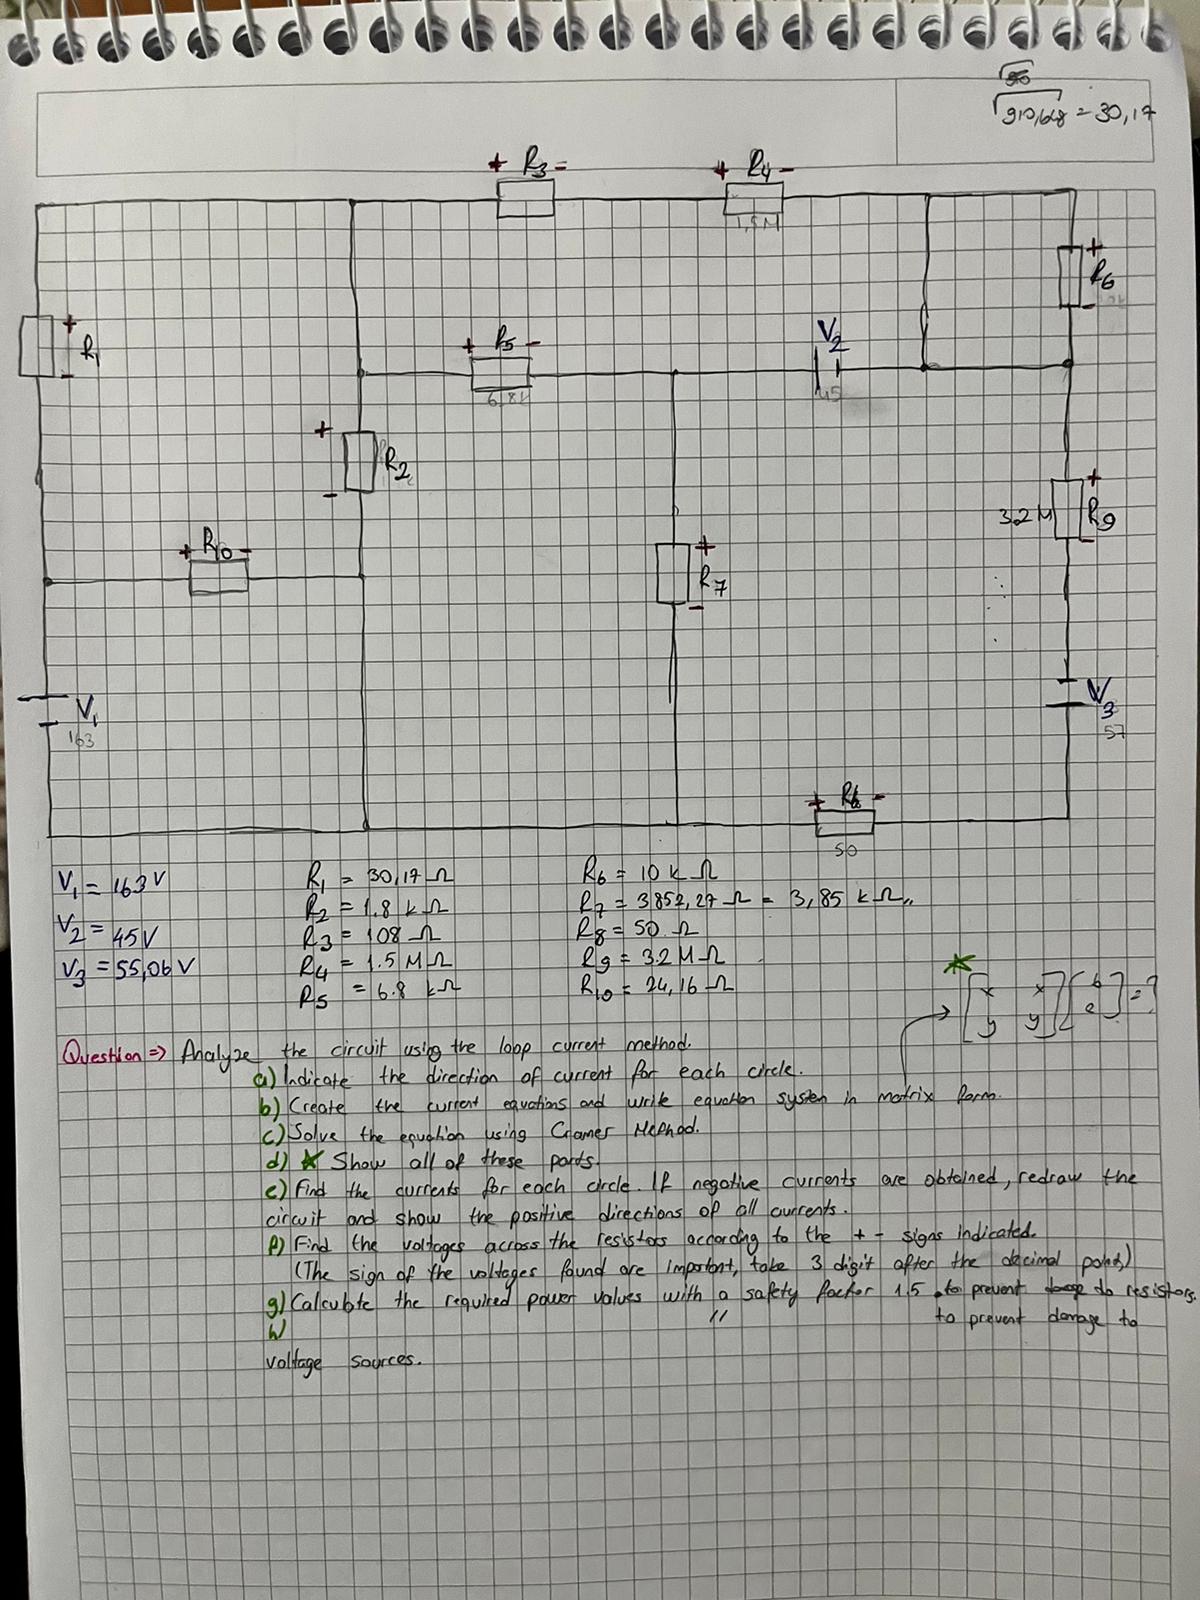 √910,648 = 30,17
+ R3 -
+ R4 -
1,5M
+
R6
-
+
R1
-
+ R5 -
6,8k
V2
45
+
R2
-
+
3.2M R9
-
+ R10 -
+
R7
-
V1
163
V3
57
+ R8 -
50
V1 = 163 V
V2 = 45V
V3 = 55,06 V
R1 = 30,17 Ω
R2 = 1.8 k Ω
R3 = 108 Ω
R4 = 1.5 M Ω
R5 = 6.8 k Ω
R6 = 10 k Ω
R7 = 3852,27 Ω = 3,85 k Ω
R8 = 50 Ω
R9 = 3.2 M Ω
R10 = 24,16 Ω
x x b
y y e = ?
Question => Analyze the circuit using the loop current method.
a) Indicate the direction of current for each circle.
b) Create the current equations and write equation system in matrix form.
c) Solve the equation using Cramer Method.
d) Show all of these parts.
e) Find the currents for each circle. If negative currents are obtained, redraw the
circuit and show the positive directions of all currents.
f) Find the voltages across the resistors according to the + - signs indicated.
(The sign of the voltages found are important, take 3 digit after the decimal point,)
g) Calculate the required power values with a safety factor 1.5 to prevent damage to resistors.
h) " to prevent damage to
voltage sources.